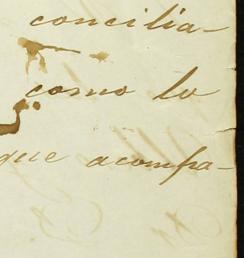 concilia-
como lo
que acompa-